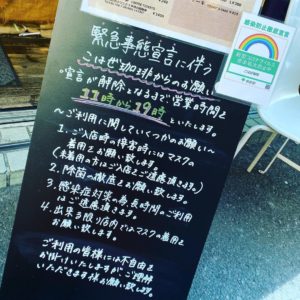 緊急事態宣言に伴う
こはぜ珈琲からのお願い
宣言が解除となるまで営業時間を
11時から19時といたします。
～ご利用に関していくつかのお願い～
1.ご入店時の作業時にはマスクの
着用をお願い致します。
(未着用の方はご入店をご遠慮頂きます。)
2.除菌の徹底をお願い致します。
3.感染症対策の為長時間のご利用
はご遠慮頂きます。
4.出来る限り店内ではマスクの着用を
お願い致します。
ご利用の皆様には不自由を
お掛けいたしますがご理解
いただきます様お願い致します。
感染防止徹底宣言